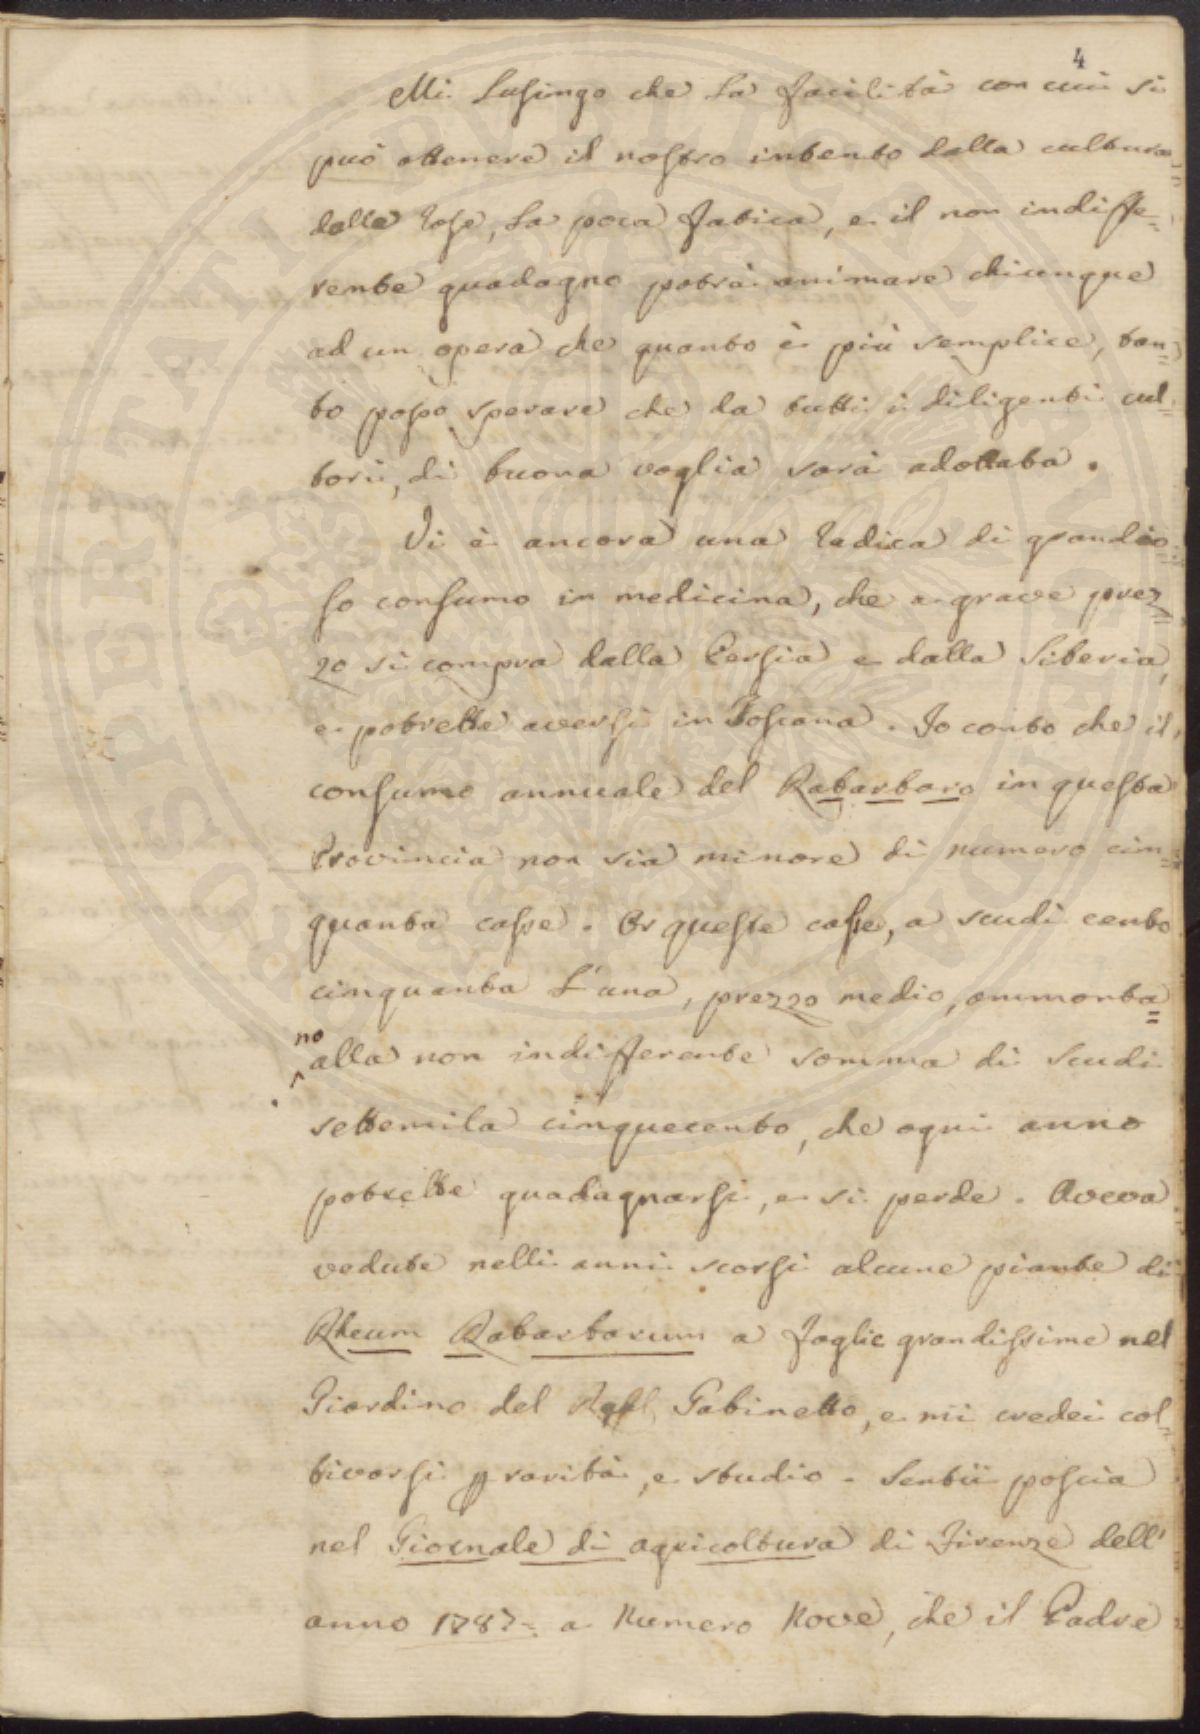 4
Mi Lusingo che La facilità con cui si
può ottenere il nostro intento dalla cultura
delle Rose, La poca fatica, e il non indiffe=
rente guadagno potrà animare chiunque
ad un opera che quanto è più semplice, tan=
to posso sperare che da tutti i diligenti cul=
tori, di buona voglia sarà adottata.
Vi è ancora una Radica di grandio=
so consumo in medicina, che a grave prez=
zo si compra dalla Persia e dalla Siberia,
e potrebbe aversi in Toscana. Io conto che il
consumo annuale del Rabarbaro in questa
Provincia non sia minore di numero cin=
quanta casse. Or queste casse, a scudi cento
cinquanta L'una, prezzo medio, ammonta=
no
alla non indifferente somma di Scudi
settemila cinquecento, che ogni anno
potrebbe guadagnarsi, e si perde. Aveva
vedute nelli anni scorsi alcune piante di
Rheum Rabarbarum a foglie grandissime nel
Giardino del Gabinetto, e mi credei col=
tivarsi p rarità, e studio. Sentii poscia
nel Giornale di agricoltura di Firenze dell'
anno 1787= a Numero Nove, che il Padre
PROSPERITATI PUBLICAE AUGENDAE